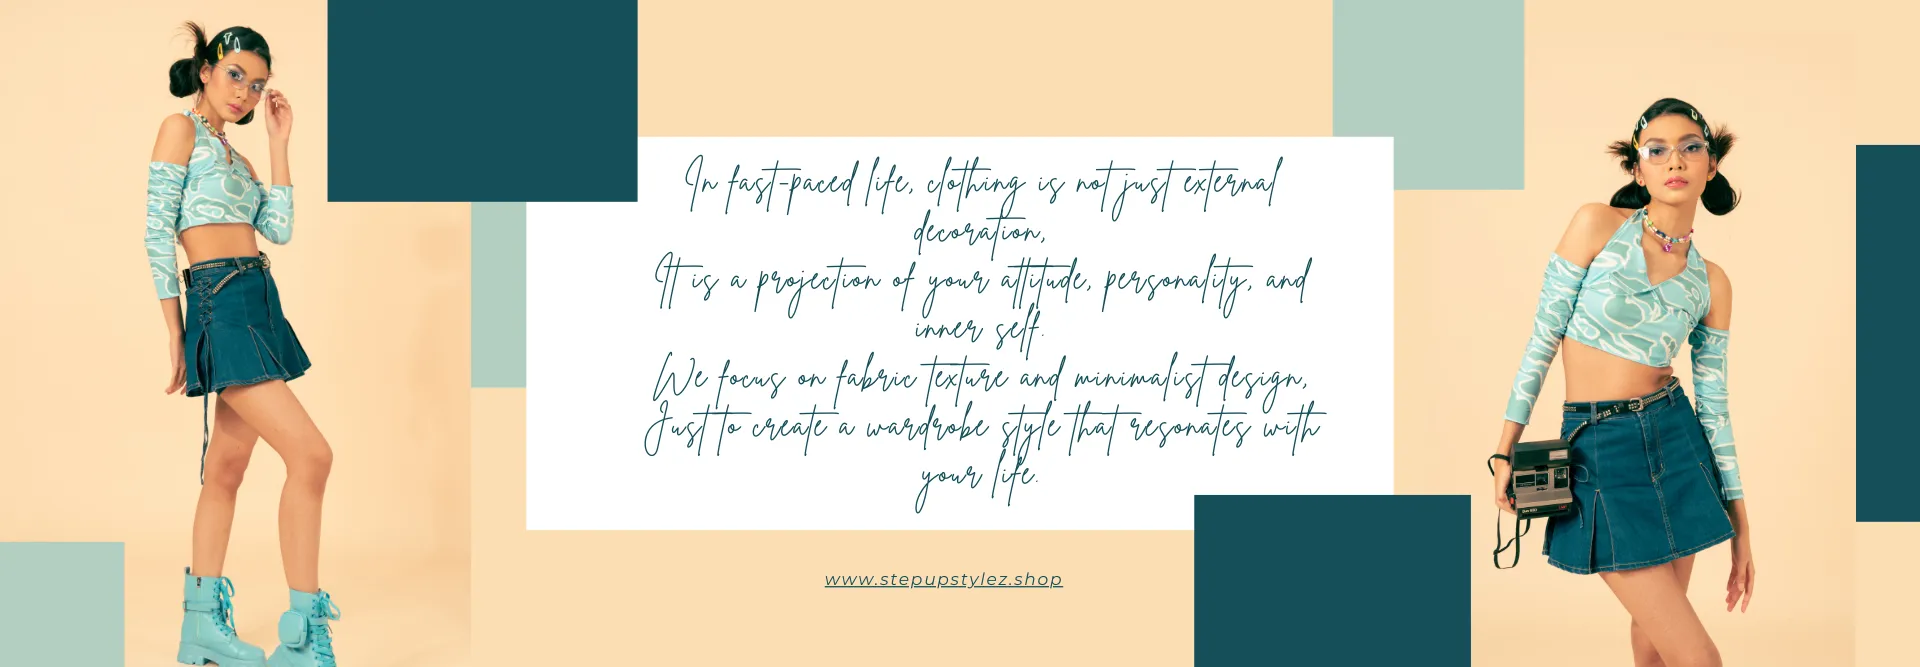 In fast-paced life, clothing is not just external
decoration,
It is a projection of your attitude, personality, and
inner self.
We focus on fabric texture and minimalist design,
Just to create a wardrobe style that resonates with
your life.
www.stepupstylez.shop